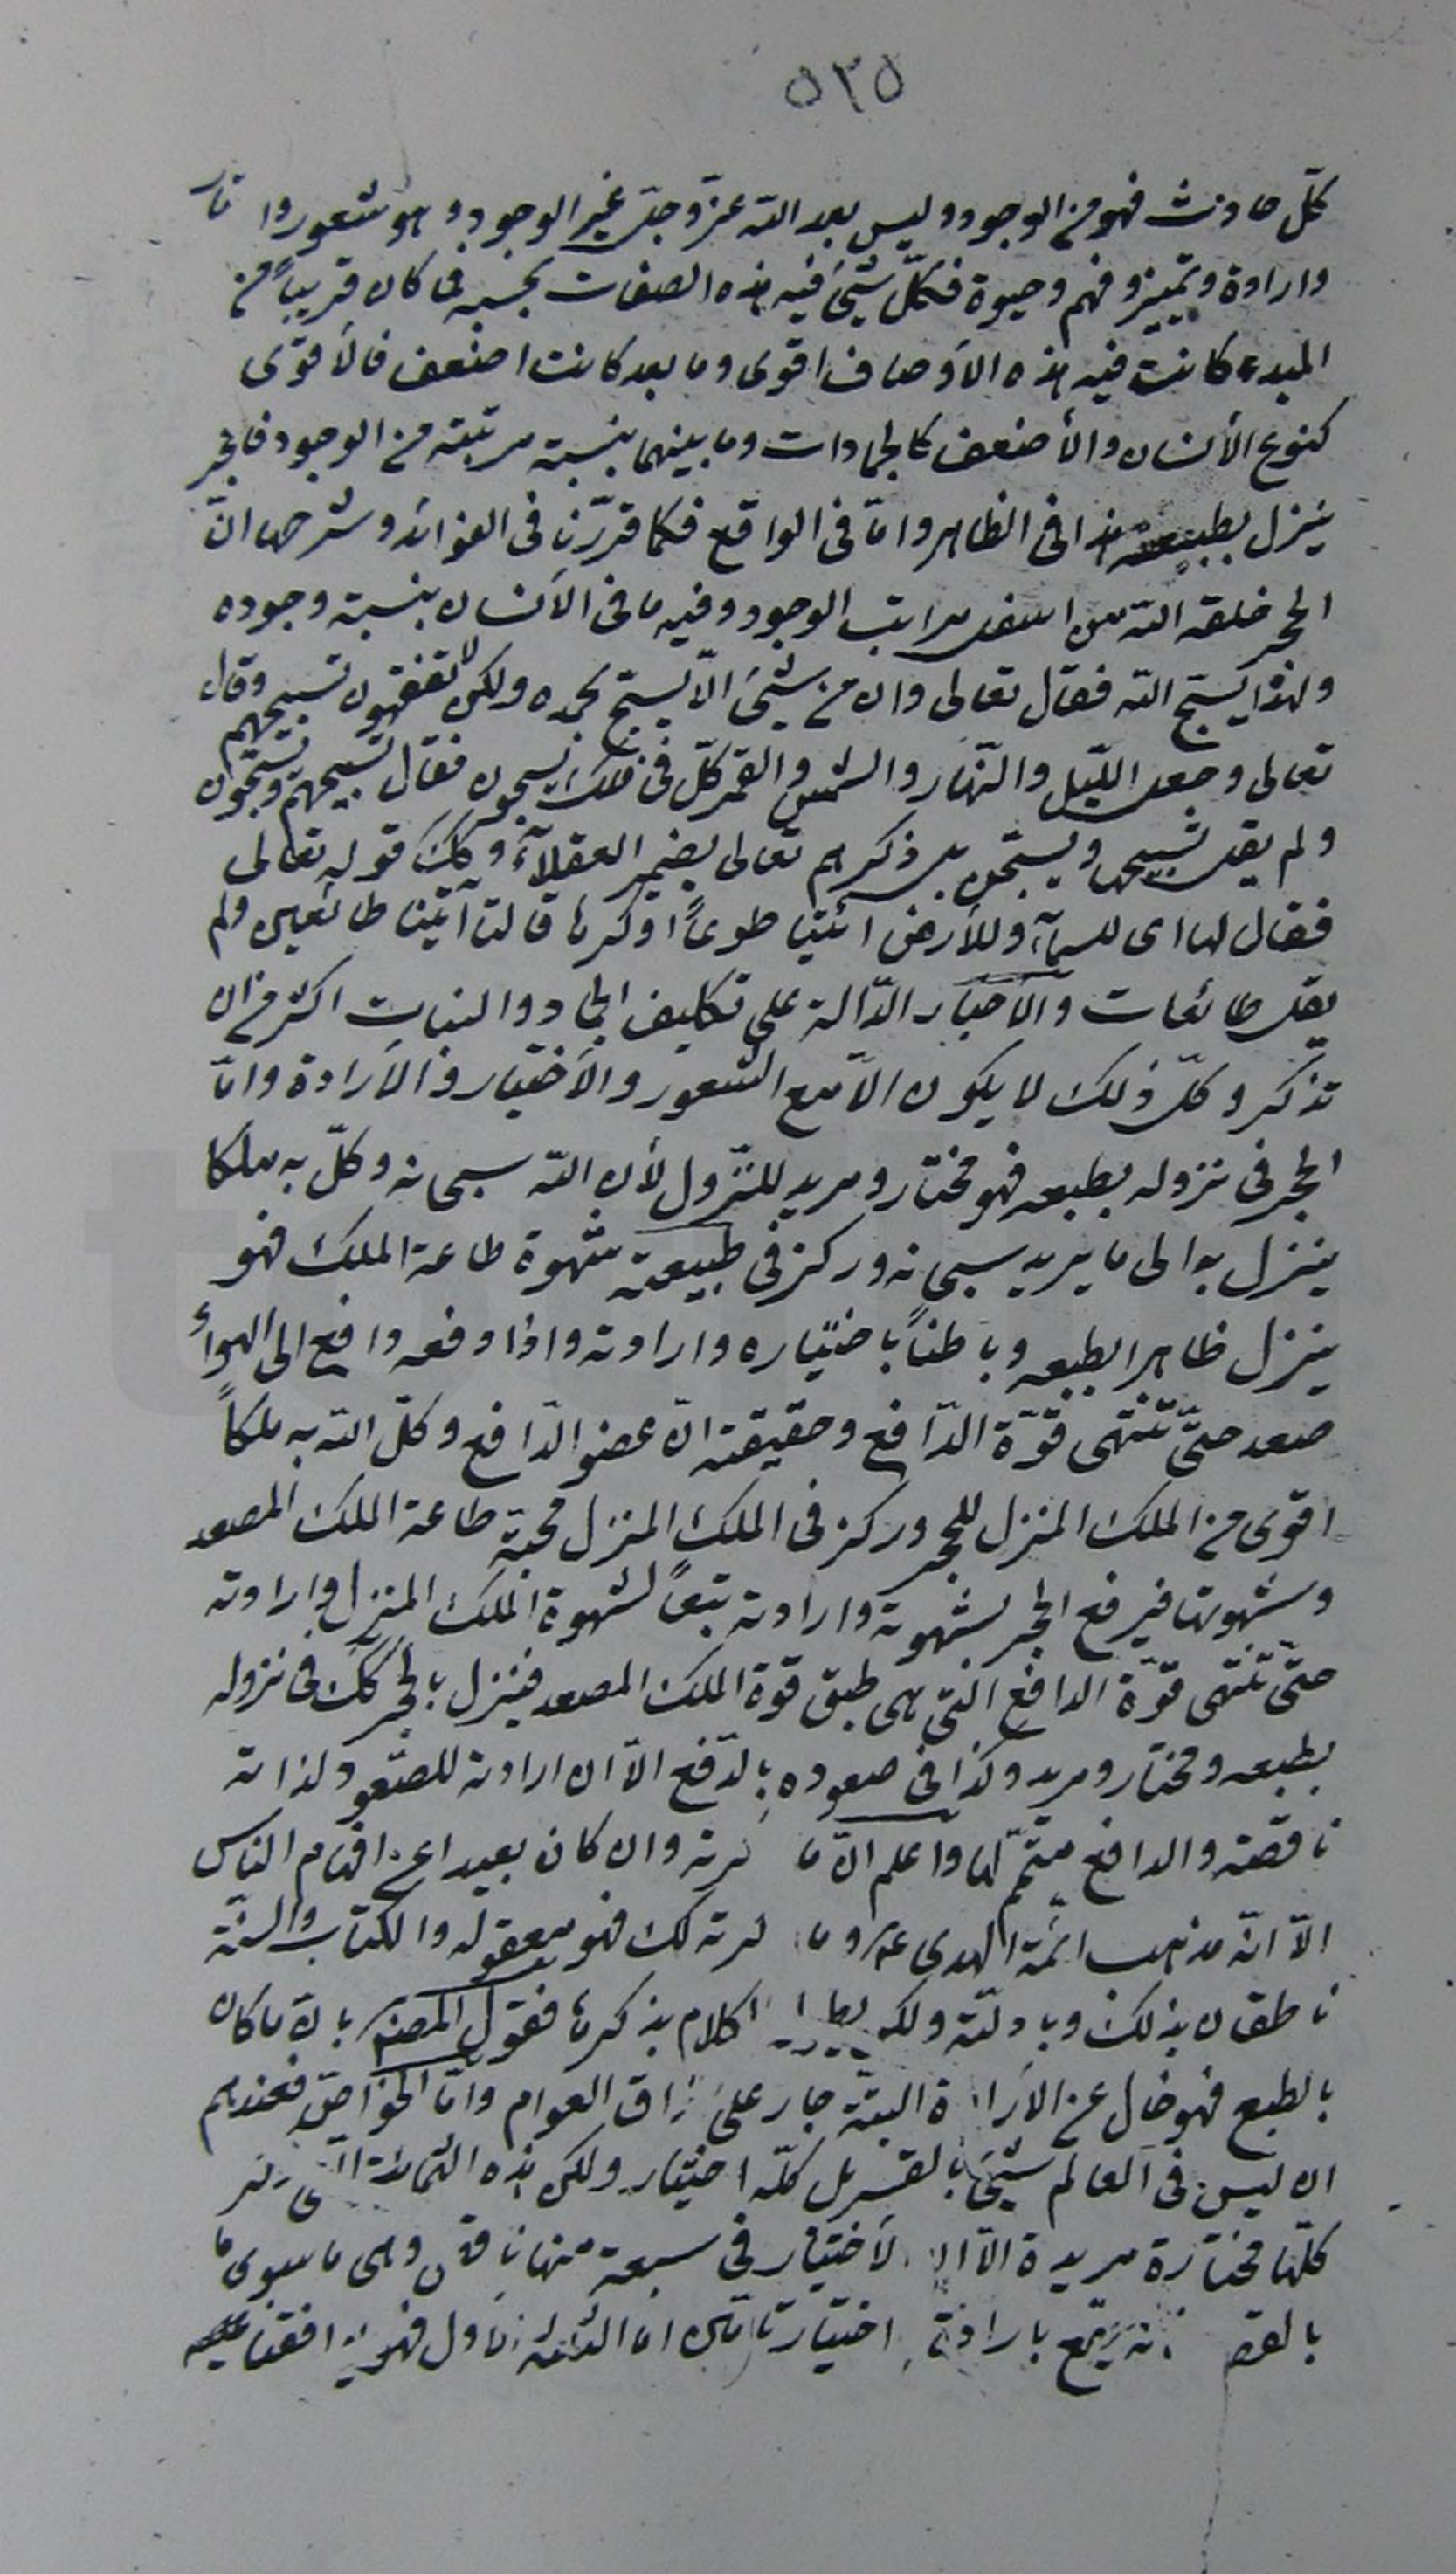 ٥٣٥
كلّ حادث فهو من الوجود وليس بعد اللّه عزّ وجلّ غير الوجود وهو شعور وا
وارادة وتمييز وفهم وحيوة فكلّ شيئ فيه هذه الصفات بحسبه فما كان قريباً من
المبدء كانت فيه هذه الأوصاف اقوى وما بعد كانت اضعف فالأقوى
كنوع الأنسان والأضعف كالجمادات وما بينهما بنسبة مرتبته من الوجود فالحجر
ينزل بطبيعته هذا فى الظاهر وامّا فى الواقع فكما قررّنا فى الفوائد وشرحها انّ
الحجر خلقه اللّه من اسفل مراتب الوجود وفيه ما فى الأنسان بنسبة وجوده
ولهذا يسبّح اللّه فقال تعالى وان من شيئ الّا يسبّح بحمده ولكن لا تفقهون تسبيحهم وقال
تعالى وجعل اللّيل والنّهار والشمس والقمر كلّ فى فلك يسبحون فقال تسبيحهم ويسبّحون
ولم يقل تسبيحها ويسبّحن بل ذكرهم تعالى بضمير العقلاۤء وكك قوله تعالى
فقال لها اى للسماۤء وللأرض ائتيا طوعاً او كرها قالتا اتينا طائعين ولم
يقل طائعات والأخبار الدّالة على تكليف الجماد والنبات اكثر من ان
تذكر وكلّ ذلك لا يكون الّا مع الشعور والأختيار والأرادة وامّا
الحجر فى نزوله بطبعه فهو مختار ومريد للنّزول لأن اللّه سبحانه وكلّ به ملكا
ينزل به الى ما يريد سبحانه وركز فى طبيعته شهوة طاعة الملك فهو
ينزل ظاهرا بطبعه وباطناً باختياره وارادته واذا دفعه دافع الى الهواۤء
صعد حتّى تنتهى قوّة الدّافع وحقيقته انّ عضو الدّافع وكلّ اللّه به ملكاً
اقوى من الملك المنزل للحجر وركز فى الملك المنزل محبّة طاعة الملك المصعد
وشهوتها فيرفع الحجر لشهوته وارادته تبعاً لشهوة الملك المنزل وارادته
حتّى تنتهى قوّة الدافع التى هى طبق قوة الملك المصعد فينزل بالحجر كك فى نزوله
بطبعه ومختار ومريد وكذا فى صعوده بالدّفع الّا ان ارادته للصّعود لذاته
ناقصة والدافع متمّم لها واعلم انّ ما ذكرته وان كان بعيدا عن افهام الناس
الّا انّه مذهب ائمّة الهدى ع وما ذكرته لك فهو معقوله والكتاب والسنّة
ناطقان بذلك وبادلّته ولكن الكلام بذكرها فقول المصنف بان ما كان
بالطبع فهو خال عن الأرادة البتّة جار على مذاق العوام وامّا الخواصّ فعندهم
ان ليس فى العالم شيئ بالقسر بل كلّه اختيار ولكن هذه الثمانية الّتى ذكر
كلّها مختارة مريدة الّا انّ الأختيار فى سبعة منها ناقص وهى ما سوى ما
بالقصد بارادة اختيار امّا الثلثة الأول فهو